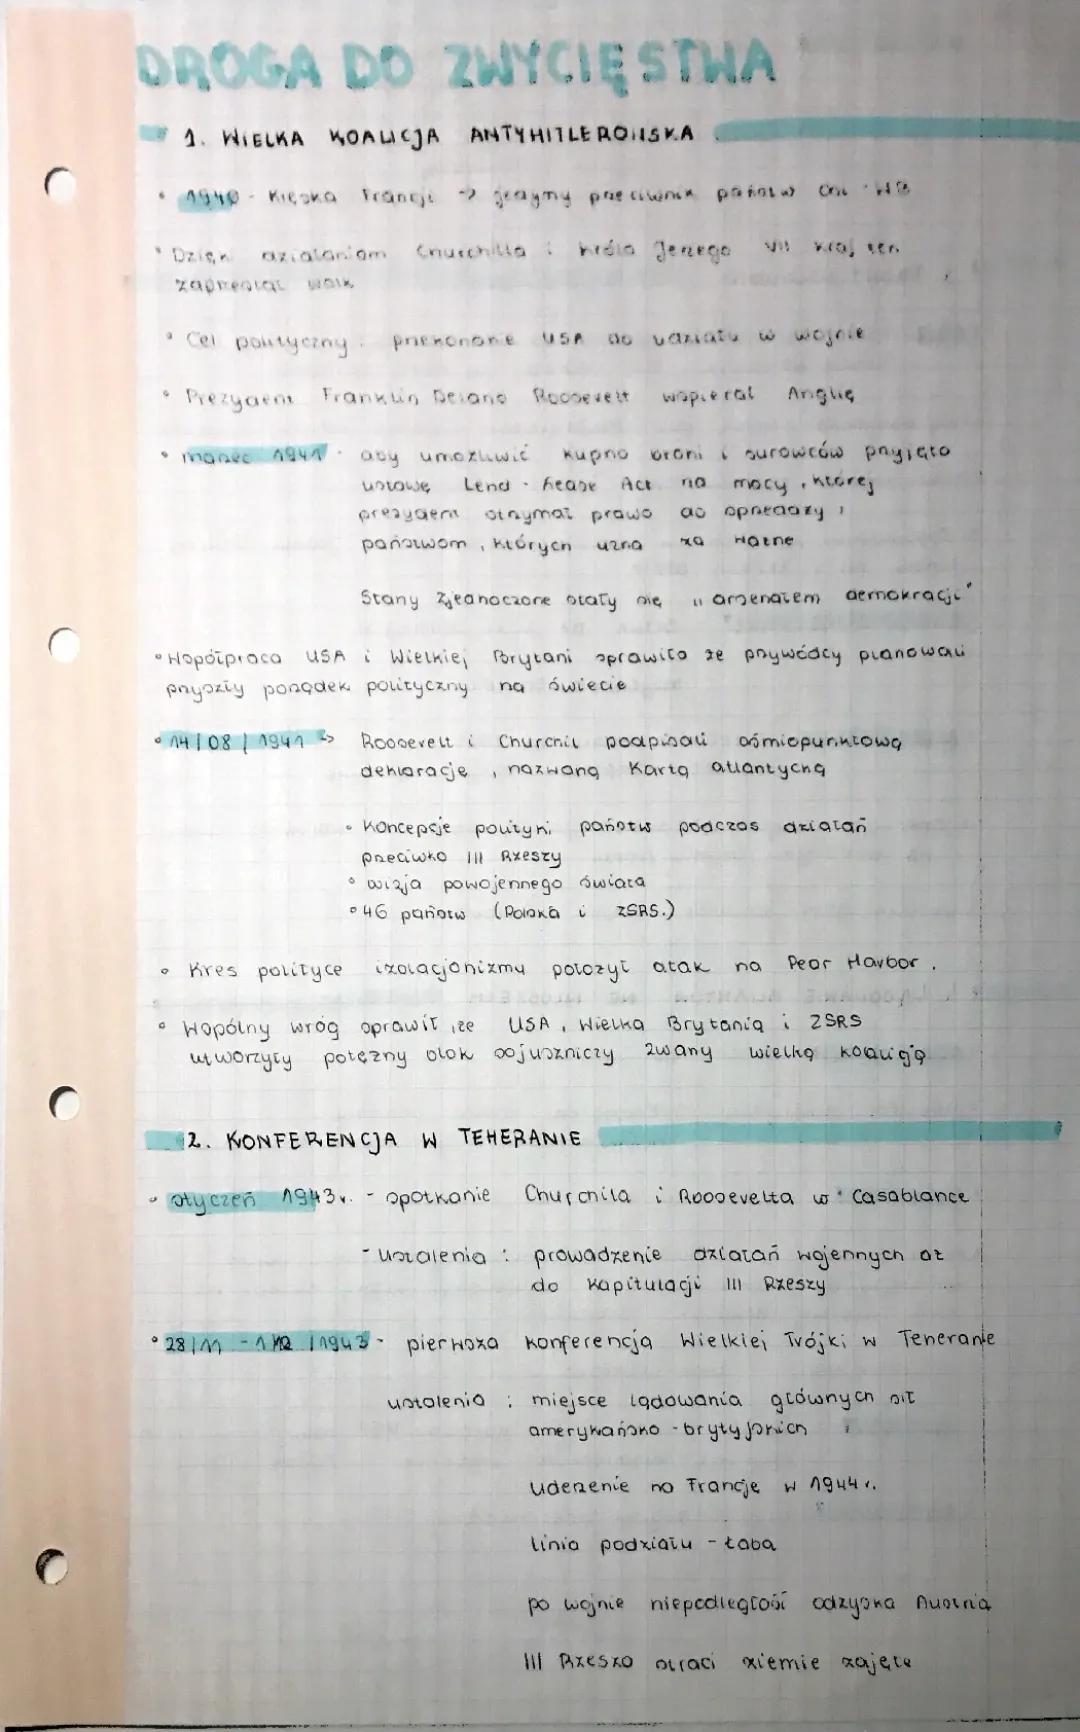 DROGA DO ZWYCIĘSTWA
1. WIELKA KOALICJA ANTYHITLEROWSKA
• 1940 - Klęska Francji -> jedyny przeciwnik państw Osi - WB
• Dzięki działaniom Churchilla i króla Jerzego VII kraj ten
zaprzestał walk
• Cel polityczny: przekonanie USA do udziału w wojnie
• Prezydent Franklin Delano Roosevelt wspierał Anglię
• marzec 1941 - aby umożliwić kupno broni i surowców przyjęto
ustawę Lend - Lease Act na mocy, której
prezydent otrzymał prawo do sprzedaży
państwom, których uzna za ważne
Stany Zjednoczone stały się „arsenałem demokracji"
• Współpraca USA i Wielkiej Brytani sprawiło że przywódcy planowali
przyszły porządek polityczny na świecie
• 14/08/1941 -> Roosevelt i Churchil podpisali ośmiopunktową
deklarację, nazwaną Kartą atlantycką
• Koncepcje polityki państw podczas działań
przeciwko III Rzeszy
• wizja powojennego świata
• 46 państw (Polska i ZSRS.)
• Kres polityce izolacjonizmu położył atak na Pear Harbor.
• Wspólny wróg sprawił, że USA, Wielka Brytania i ZSRS
utworzyły potężny blok sojuszniczy zwany wielką koalicją
2. KONFERENCJA W TEHERANIE
• styczeń 1943r. - spotkanie Churchila i Roosevelta w Casablance
- ustalenia: prowadzenie działań wojennych aż
do kapitulacji III Rzeszy
• 28/11 - 1/12/1943 - pierwsza konferencja Wielkiej Trójki w Teheranie
ustalenia: miejsce lądowania głównych sił
amerykańsko - brytyjskich
uderzenie na Francję w 1944r.
linia podziału - Łaba
po wojnie niepodległość odzyska Austria
III Rzesza straci ziemie zajęte